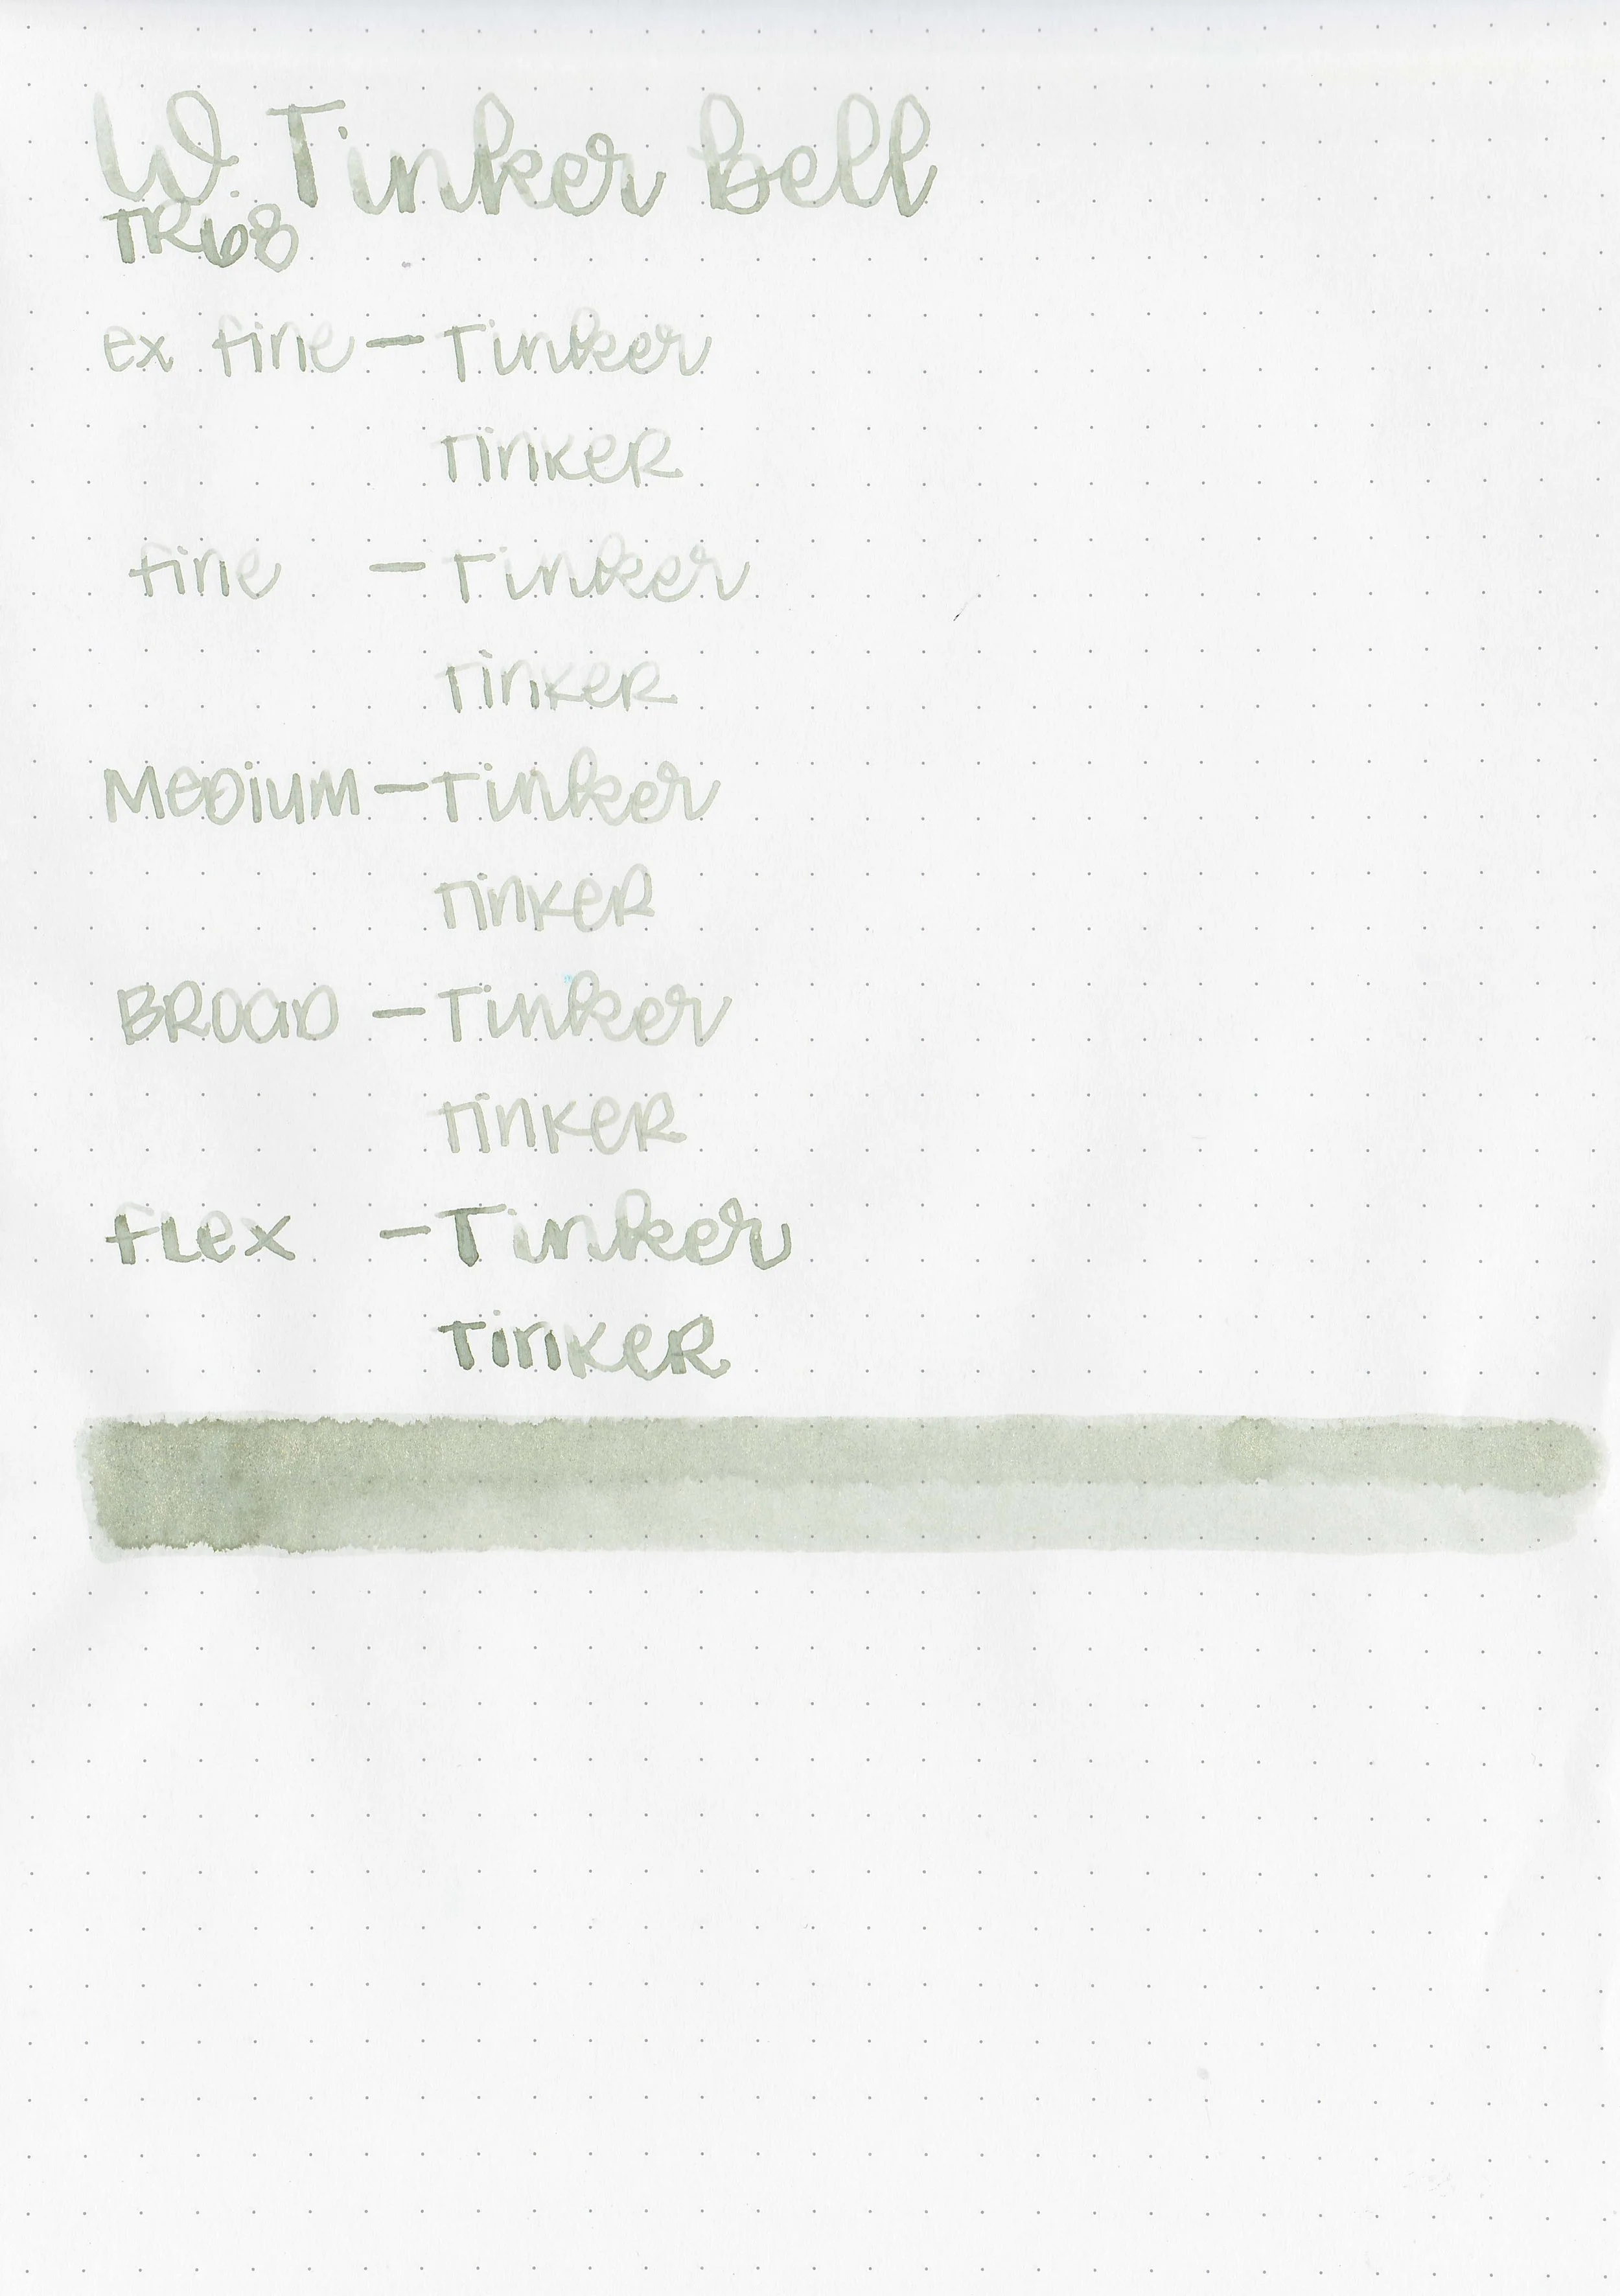 W. Tinker Bell
TR68
ex fine - Tinker
TinkeR
fine - Tinker
TinkeR
MeDiuM - Tinker
TinkeR
BROaD - Tinker
TinkeR
fLex - Tinker
TinkeR